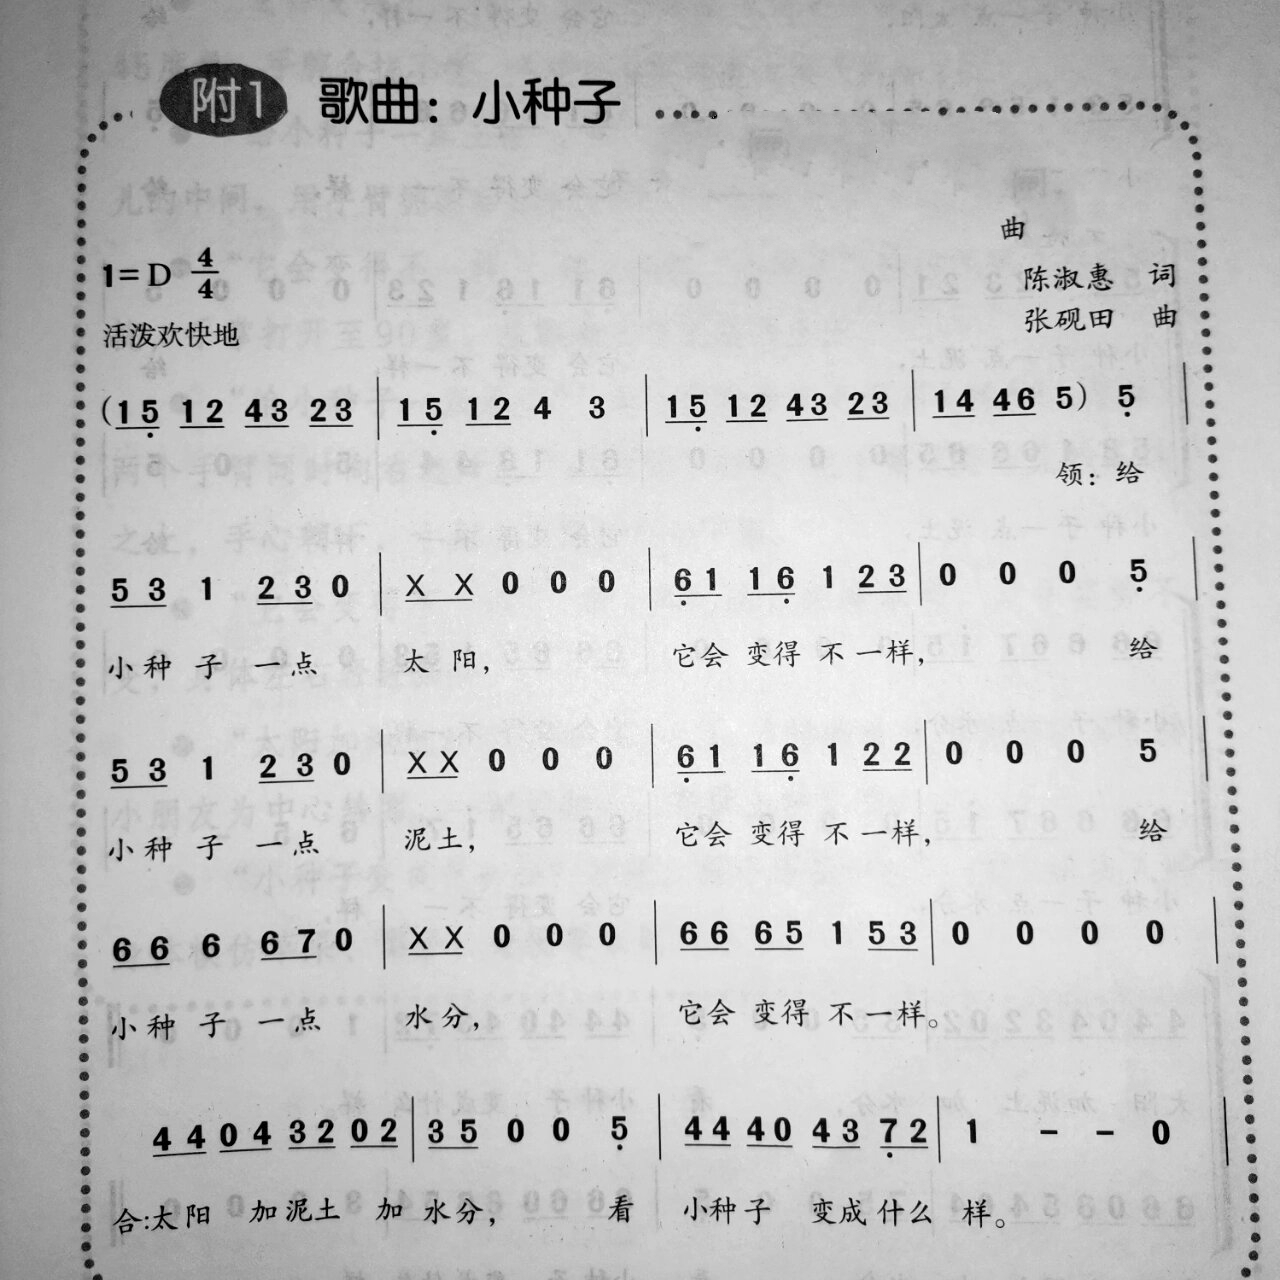 附1 歌曲：小种子
曲
1=D 4/4
陈淑惠 词
活泼欢快地
张砚田 曲
(15̣ 12 43 23 | 15̣ 12 4 3 | 15̣ 12 43 23 | 14 46 5) 5̣ |
领：给
53 1 23 0 | X X 0 0 0 | 6̣1 16̣ 1 23 | 0 0 0 5̣ |
小种 子 一点 太 阳， 它会 变得 不 一样， 给
53 1 23 0 | X X 0 0 0 | 6̣1 16̣ 1 22 | 0 0 0 5 |
小种 子 一点 泥土， 它会 变得 不 一样， 给
66 6 67 0 | X X 0 0 0 | 66 65 1 53 | 0 0 0 0 |
小种 子 一点 水分， 它会 变得 不 一样。
44 04 32 02 | 35 0 0 5̣ | 44 40 43 7̣2 | 1 - - 0 |
合:太阳 加泥土 加 水分， 看 小种子 变成 什么 样。